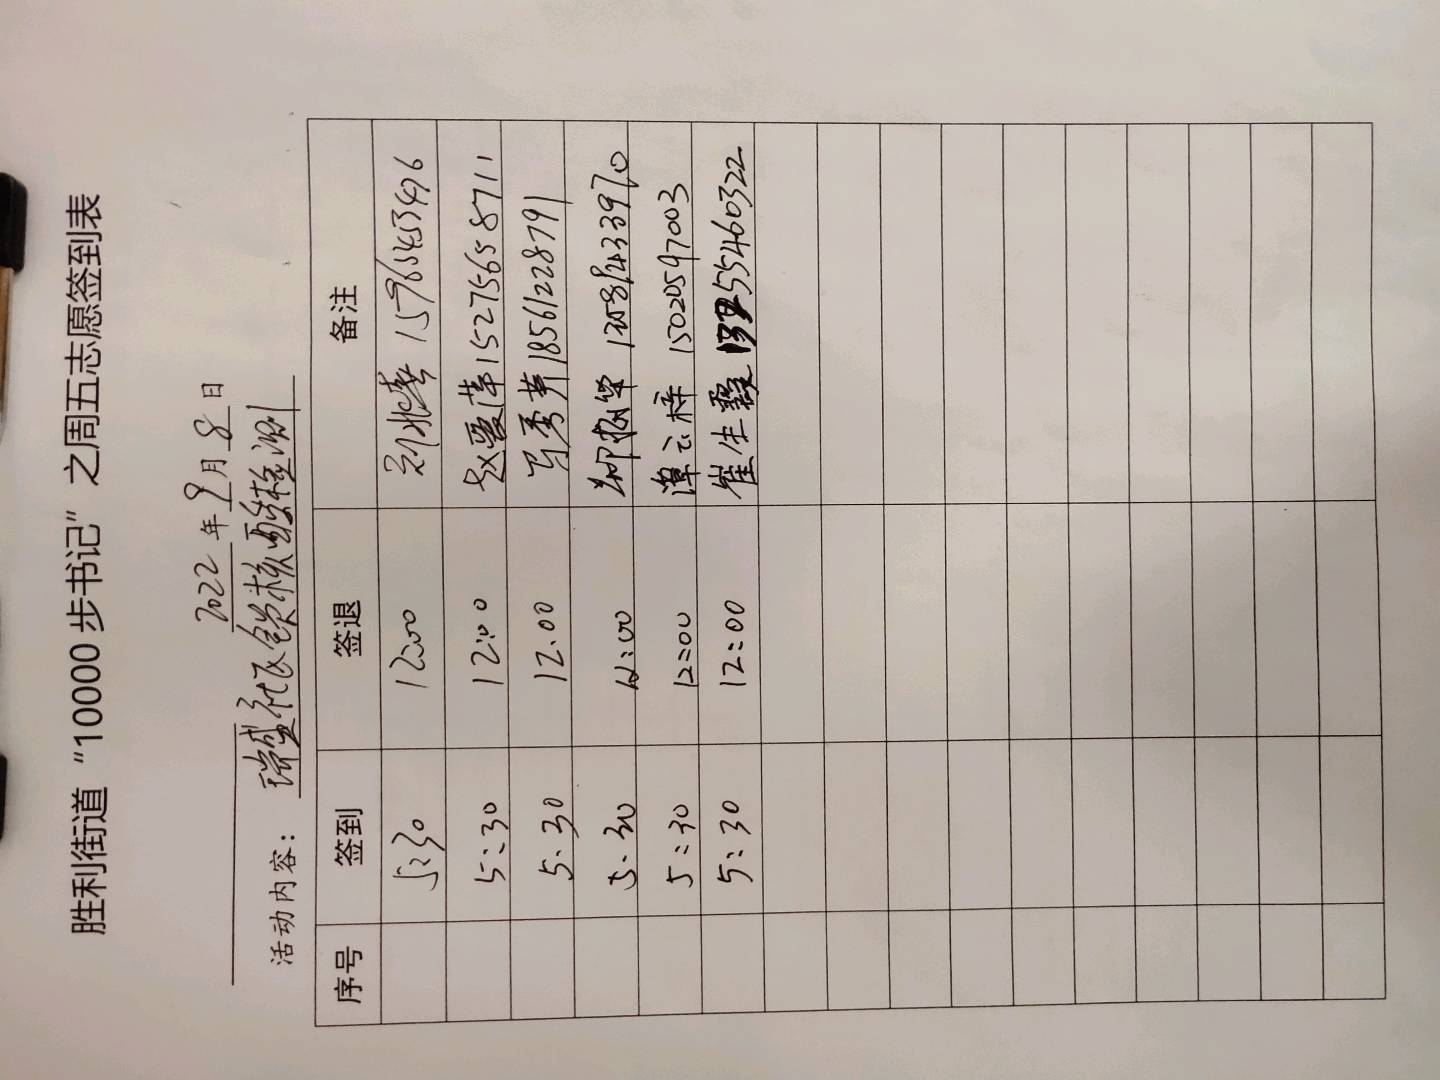 胜利街道“10000步书记”之周五志愿签到表
2022年9月8日
活动内容：瑞盛社区全员核酸检测
序号 签到 签退 备注
5:30 12:00 15965453496
5:30 12:00 赵爱萍 15275658711
5:30 12:00 马秀芳 18561228791
5:30 12:00
5:30 12:00 谭云梓 15020597003
5:30 12:00 崔生霞 55460322